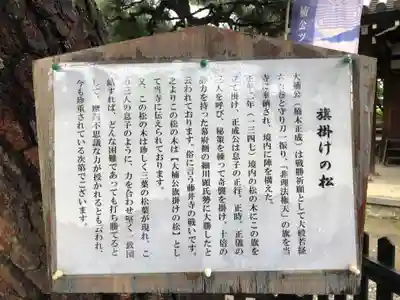 楠公
旗掛けの松
大楠公(楠木正成)は戦勝祈願として大般若経
六百巻と守り刀一振り、「非理法権天」の旗を当
寺に奉納され、境内に陣を構えた。
正平二年(一三四七)境内の松の木にこの旗を
立て掛け、正成公は息子の正行、正時、正儀の
三人を呼び、秘策を練って奇襲を掛け、十倍の
勢力を持った幕府側の細川顕氏勢に大勝したと
云われております。俗に言う藤井寺の戦いです。
之よりこの松の木は【大楠公旗掛けの松】とし
て当寺に伝えられております。
又、この松の木は珍しく三葉の松葉が現れ、こ
の三人の子のように、力を合わせ堅く一致団
結すれば、どんな困難であっても打ち勝てると
して、摩訶不思議な力が授かれるとも云われ、
今も珍重されている次第でございます。